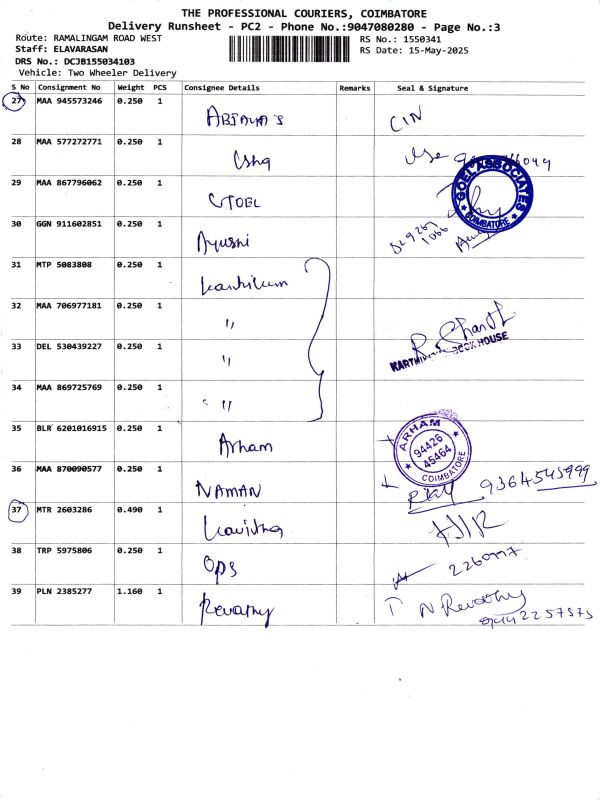 THE PROFESSIONAL COURIERS, COIMBATORE
Delivery Runsheet - PC2 - Phone No.:9047080280 - Page No.:3
Route: RAMALINGAM ROAD WEST
RS No.: 1550341
Staff: ELAVARASAN
RS Date: 15-May-2025
DRS No.: DCJB155034103
Vehicle: Two Wheeler Delivery
S No Consignment No Weight PCS Consignee Details Remarks Seal & Signature
27 MAA 945573246 0.250 1 CIN
28 MAA 577272771 0.250 1
29 MAA 867796062 0.250 1 GOEL GOEL ASSOCIATES COIMBATORE
30 GGN 911602851 0.250 1 Ayushi
31 MTP 5083808 0.250 1
32 MAA 706977181 0.250 1 "
33 DEL 530439227 0.250 1 " BOOK HOUSE
34 MAA 869725769 0.250 1 "
35 BLR 6201016915 0.250 1 Arham ARHAM 94426 45464 COIMBATORE
36 MAA 870090577 0.250 1 NAMAN 9364545999
37 MTR 2603286 0.490 1 Kavitha
38 TRP 5975806 0.250 1 Ops
39 PLN 2385277 1.160 1 Revathy N Revathy